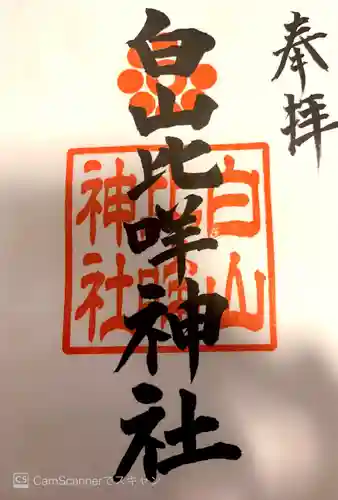 奉拝
白山比咩神社
白山
比咩
神社
CS CamScannerでスキャン